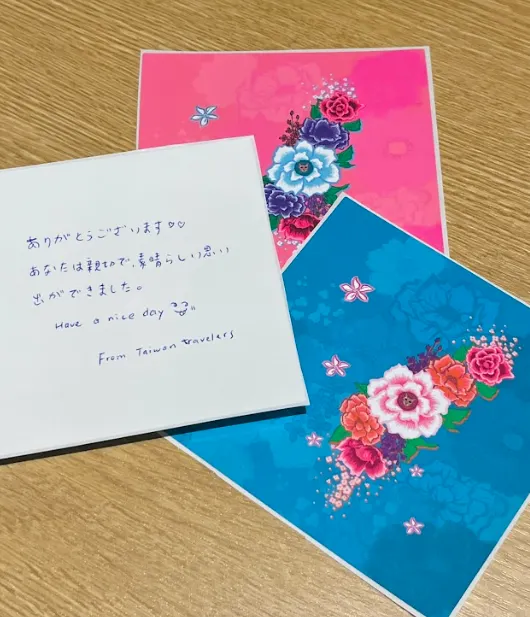 ありがとうございます♡♡
あなたは親切で、素晴らしい思い
出ができました。
Have a nice day
From Taiwan travelers